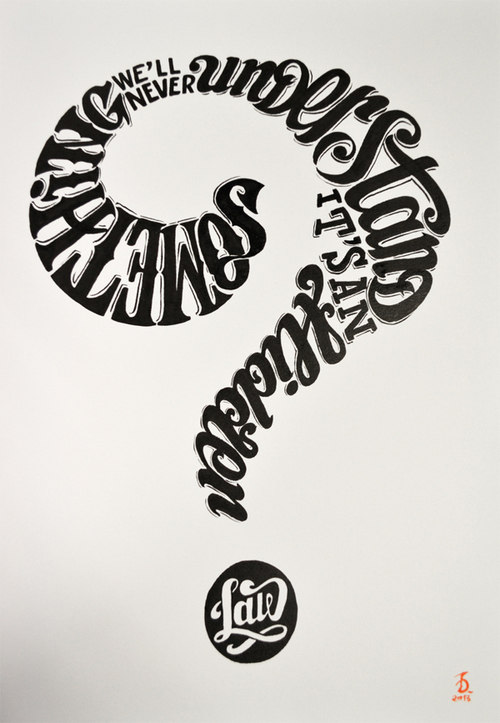 SOMETHING
WE'LL
NEVER
underStand
IT'S AN
Hidden
Law
2013